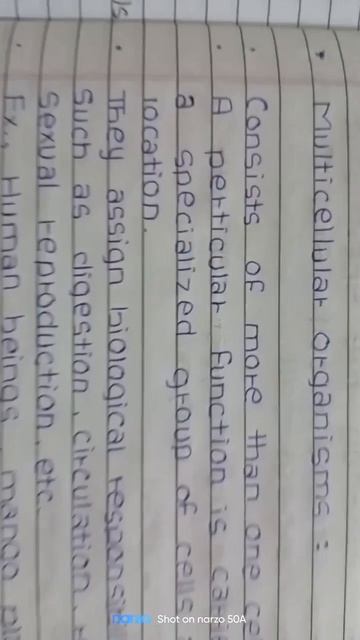 Multicellular organisms :
• Consists of more than one
• A perticular function is
a specialized group of cells
location.
ls • They assign biological
such as digestion, circulation,
sexual reproduction, etc.
• Ex., Human beings, mango
Shot on narzo 50A